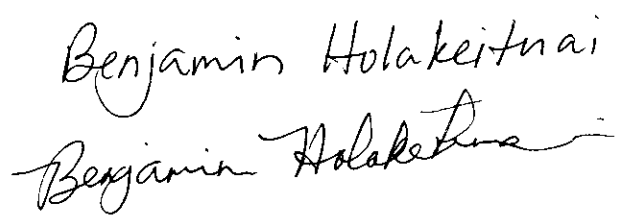 Benjamin Holakeituai
Benjamin Holakeituai